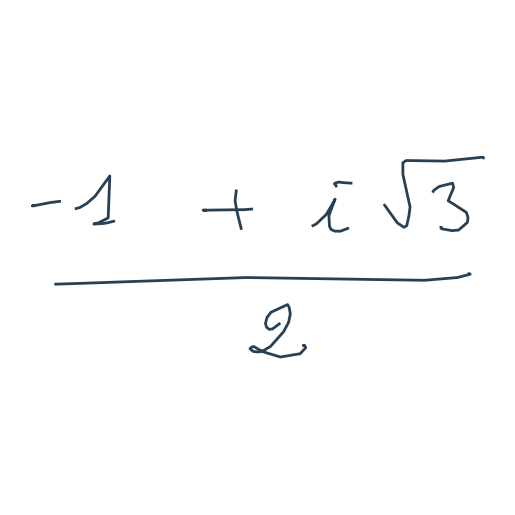 -1 + i√3
2